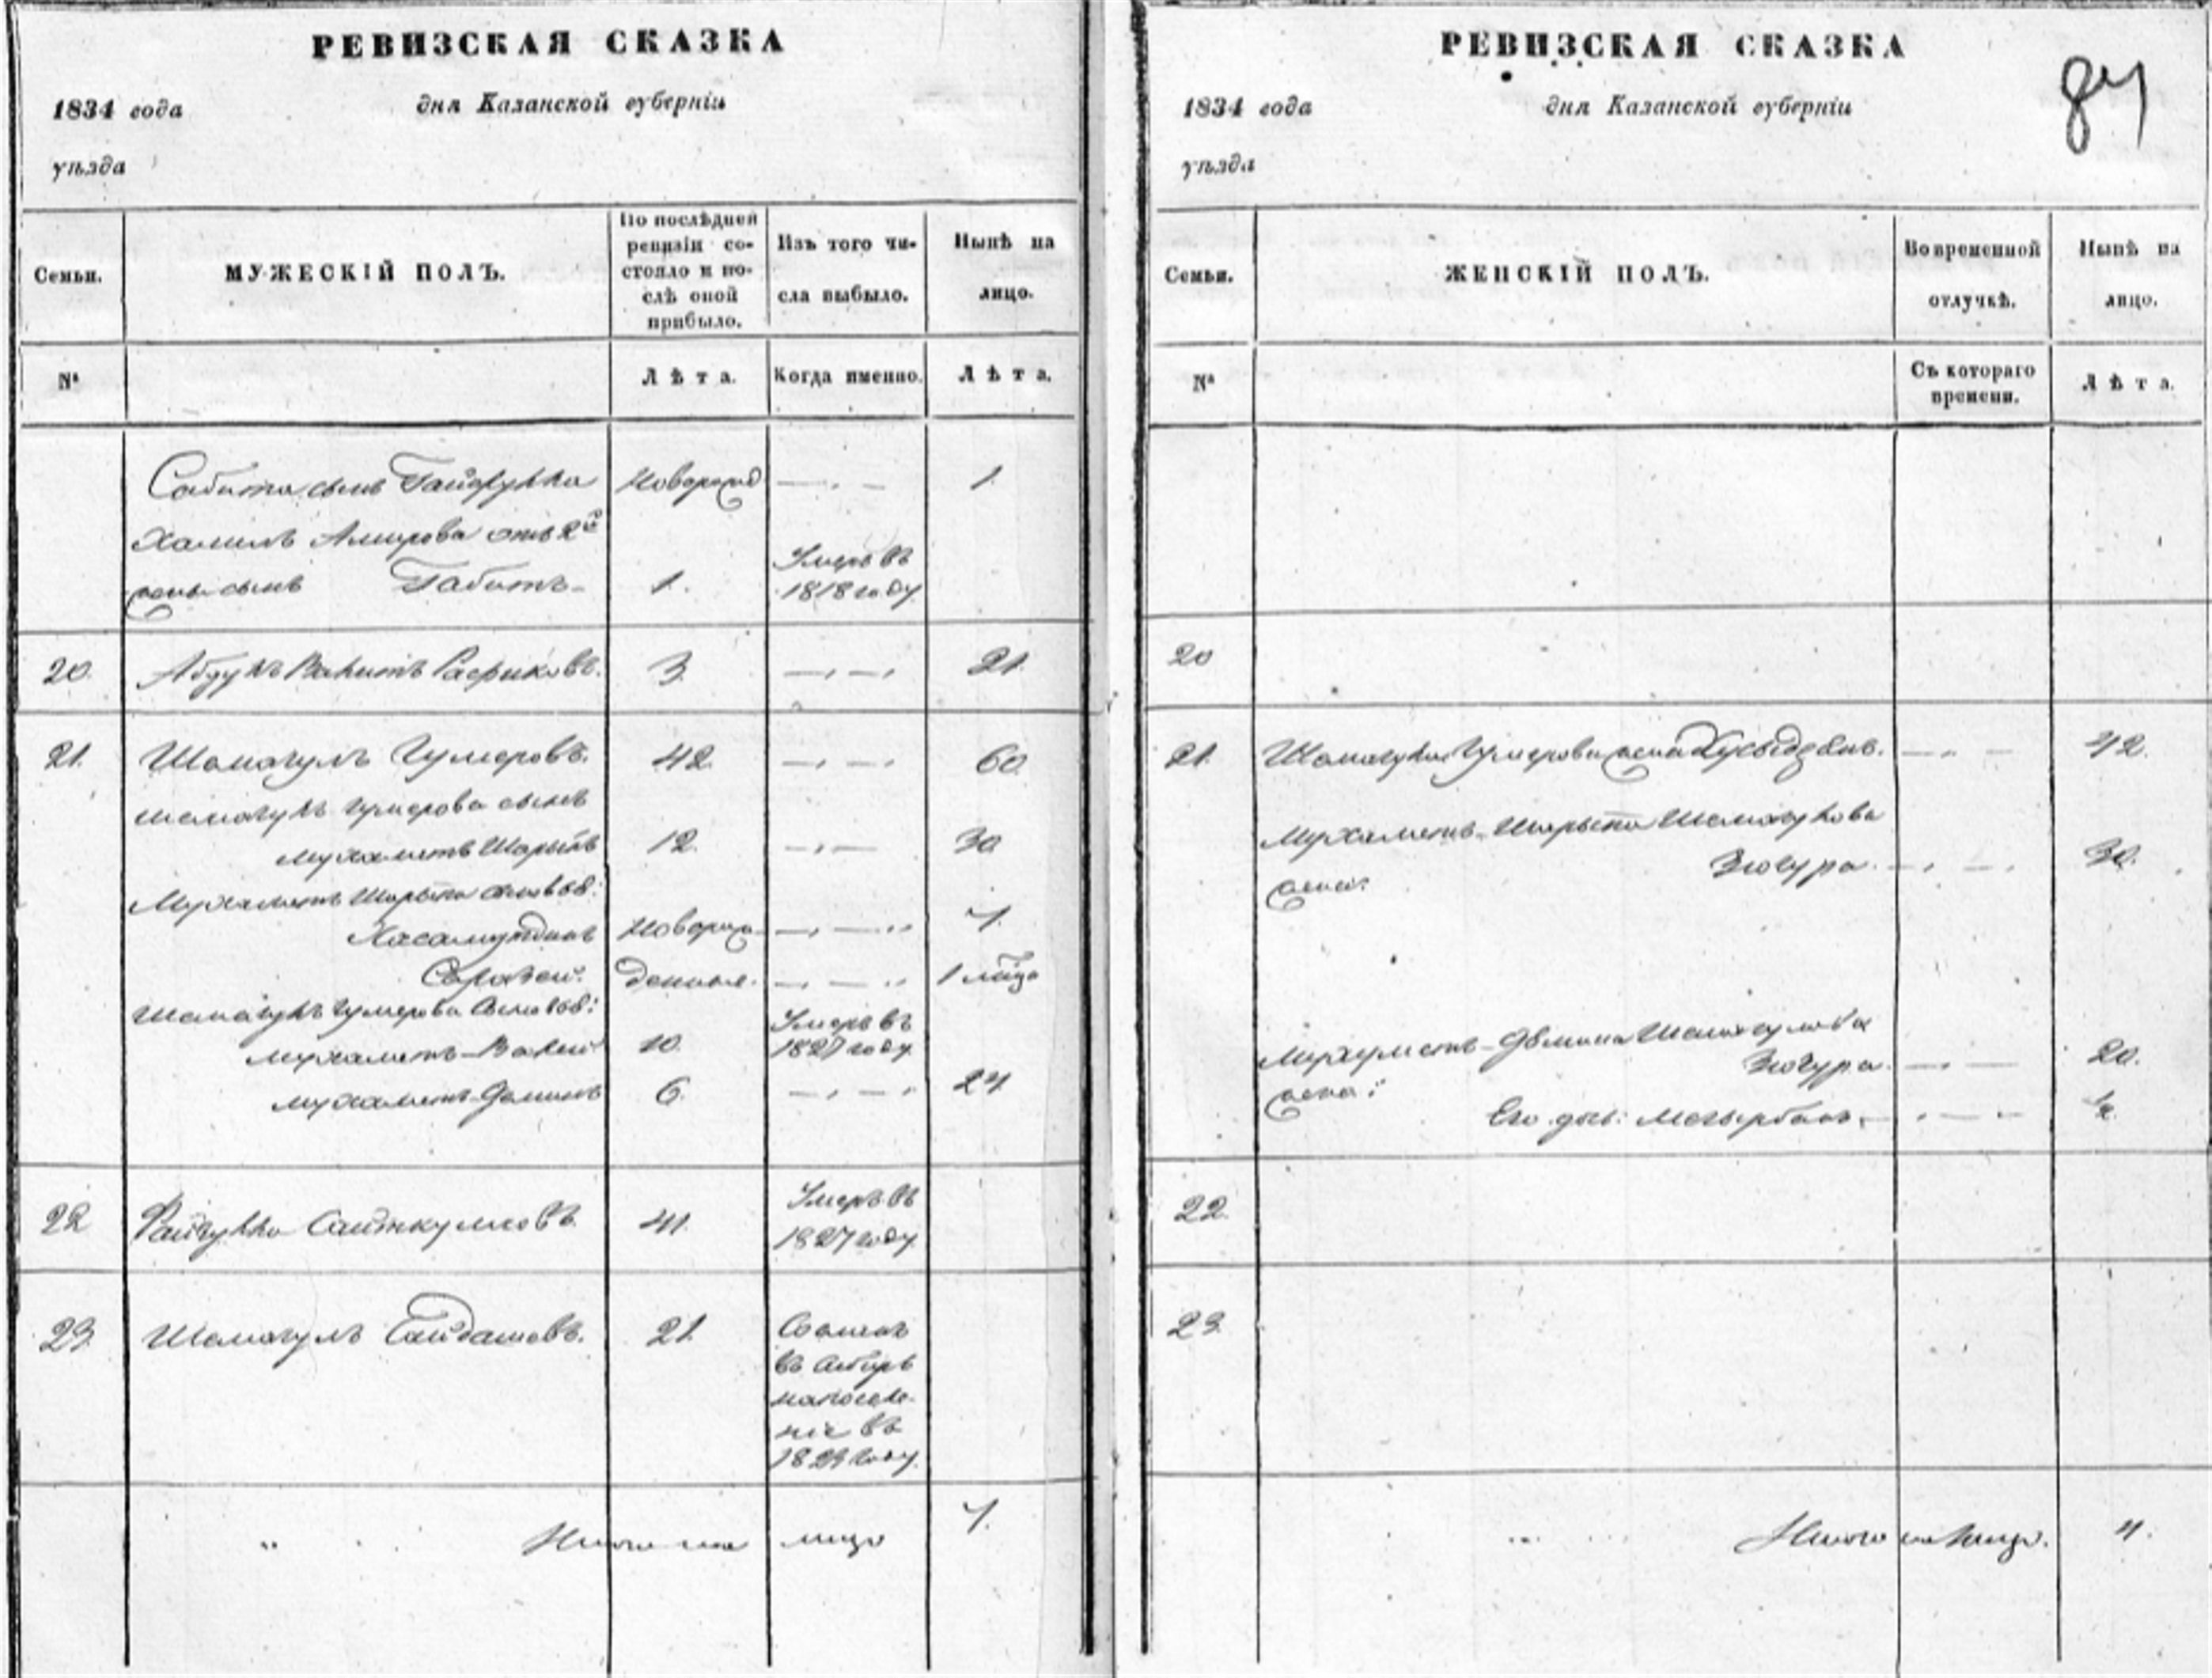 РЕВИЗСКАЯ СКАЗКА
1834 года дня Казанской губерніи
уѣзда
Семьи.
МУЖЕСКІЙ ПОЛЪ.
По послѣдней
ревизіи со-
стояло и по-
слѣ оной
прибыло.
Изъ того чи-
сла выбыло.
Нынѣ на
лицо.
№
Лѣта.
Когда именно.
Лѣта.
Сабита сынъ Гайфулла Новорожд 1.
Халилъ Амирова отъ 2й
жены сынъ Габитъ 1. Умеръ въ
1818 году
20. Абдулъ Вагитъ Рафиковъ. 3. 21.
21. Шамагулъ Гумеровъ. 42. 60
Шамагулъ Гумерова сынъ
Мухаметъ Шарыпъ 12. 30
Мухаметъ Шарыпа сыновья:
Хасамутдинъ Новорож- 7.
денные. 1
Шамагулъ Гумерова сыновья:
Мухаметъ-Валей 10. Умеръ въ
году
Мухаметъ 6. 24
22 Сайткуловъ 41. Умеръ въ
1827 году.
23. Шамагулъ 21. Сосланъ
въ Сибирь
на поселе-
ніе въ
году.
Итого на лицо 7.
РЕВИЗСКАЯ СКАЗКА
84
1834 года дня Казанской губерніи
уѣзда
Семьи.
ЖЕНСКІЙ ПОЛЪ.
Во временной
отлучкѣ.
Нынѣ на
лицо.
№
Съ котораго
времени.
Лѣта.
20
21. Шамагула Гумерова жена 42.
Мухаметъ-Шарыпа Шамагулова
жена: Зюгура. 30.
Шамагулова
жена: Зюгура. 20.
Его дочь:
22.
23.
Итого на лицо. 4.